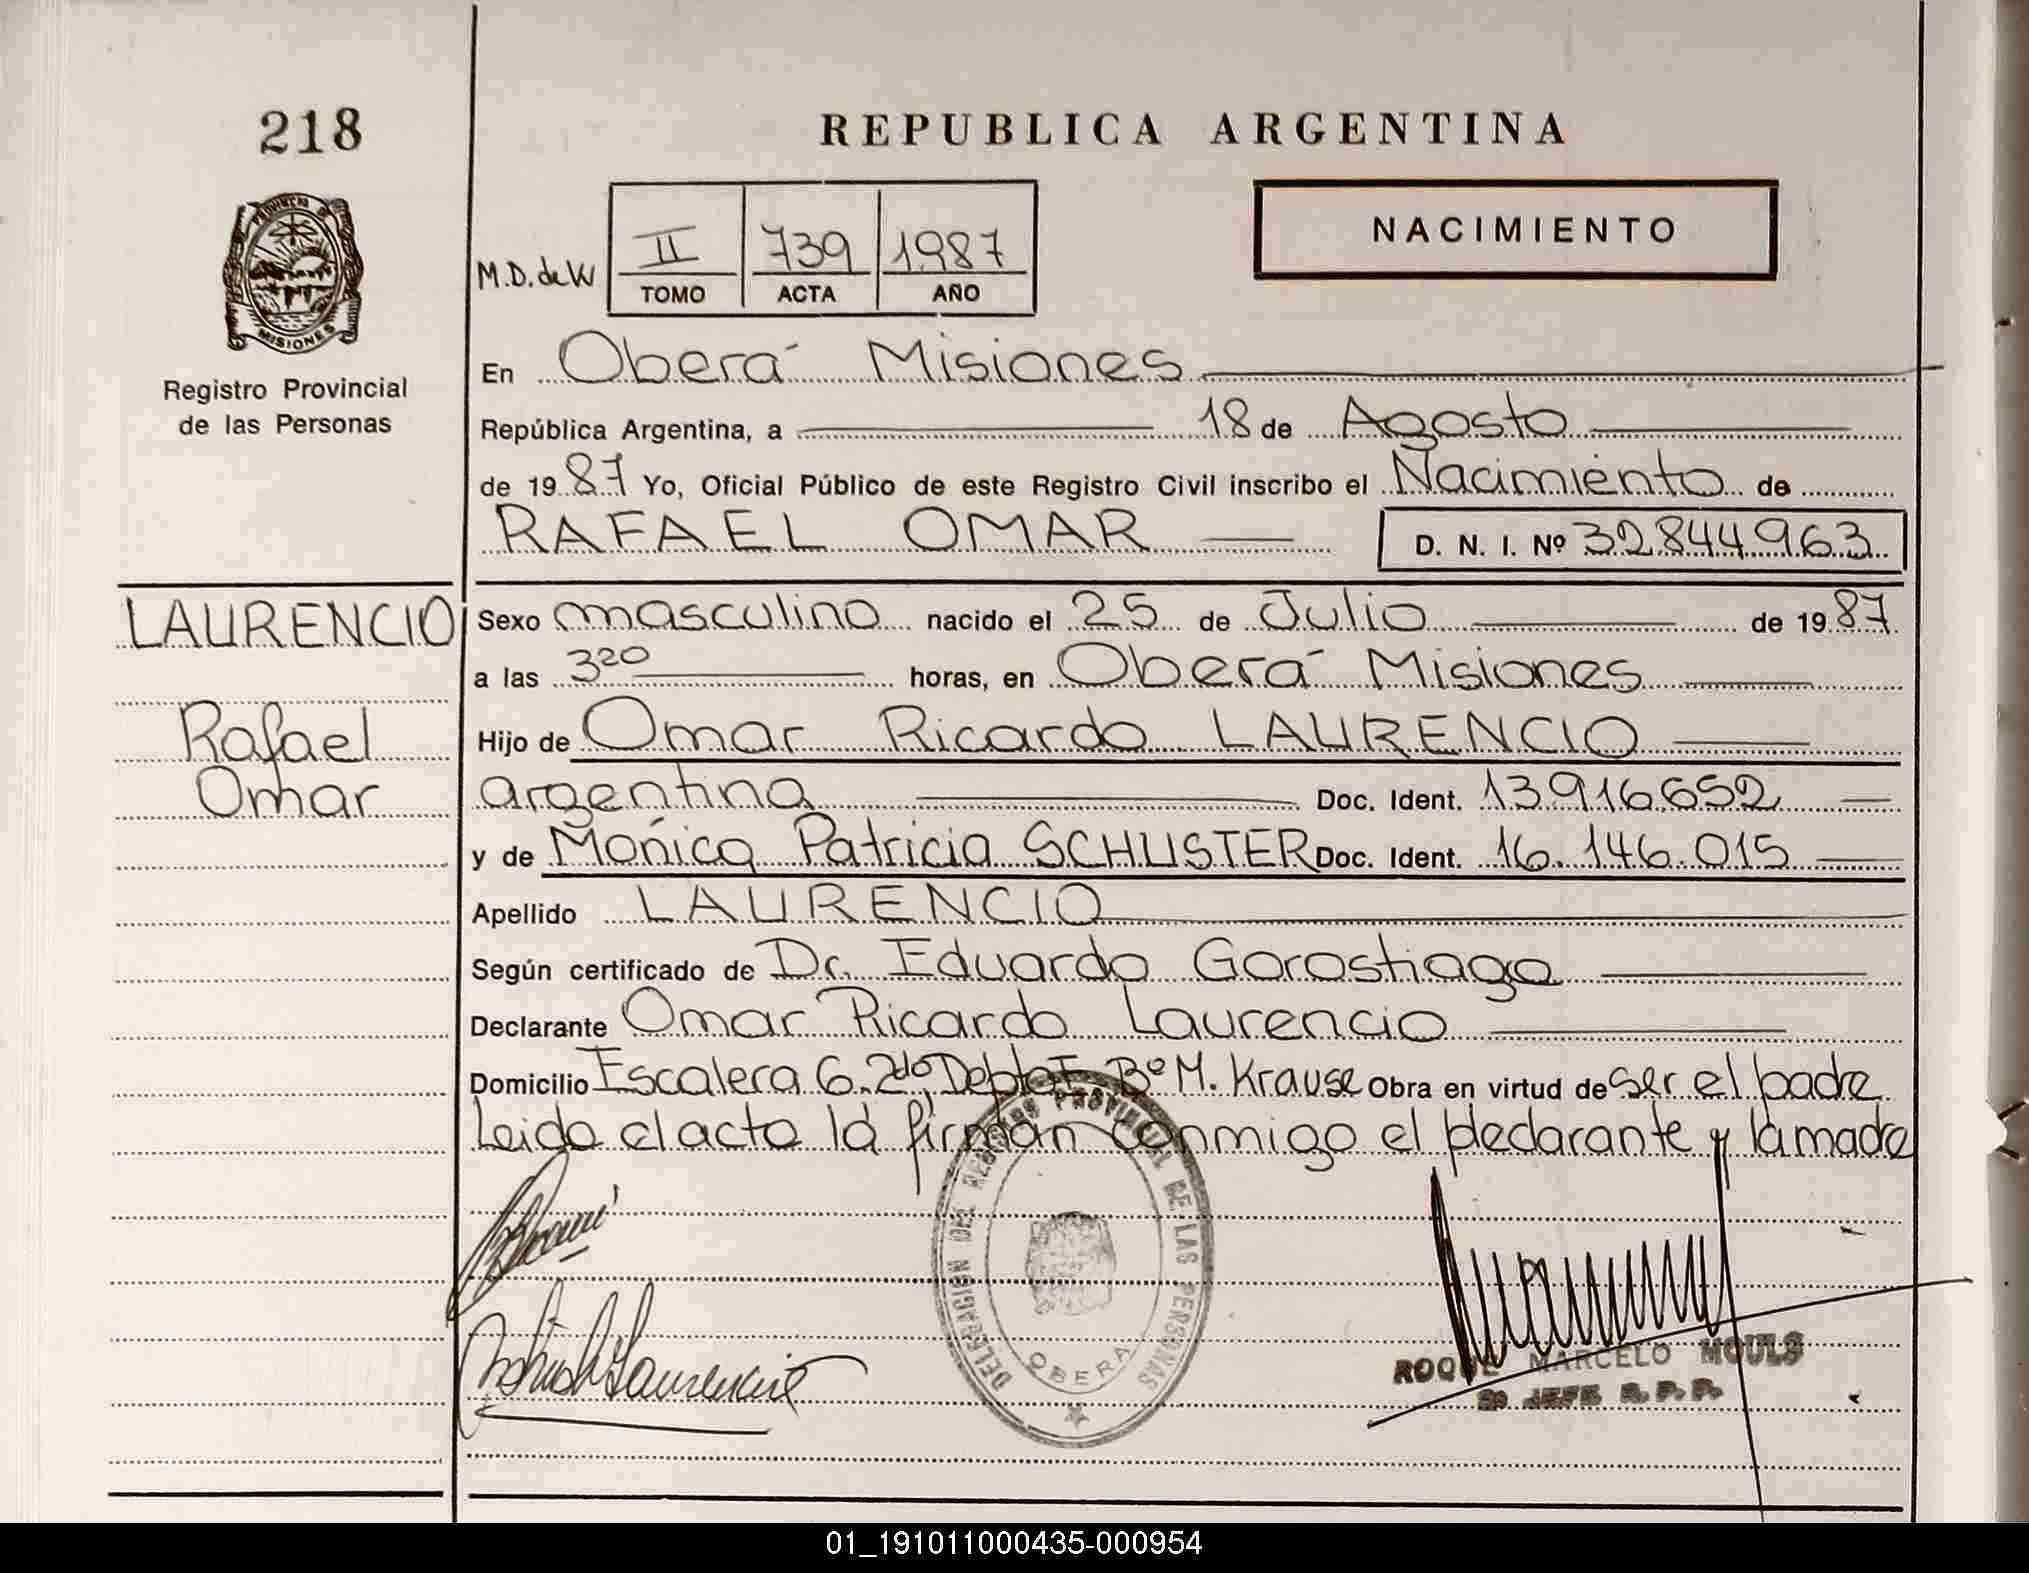 218
REPUBLICA ARGENTINA
NACIMIENTO
PROVINCIA DE
MISIONES
Registro Provincial
de las Personas
M.D. de W
II 739 1987
TOMO ACTA AÑO
En Oberá Misiones
República Argentina, a 18 de Agosto
de 1987 Yo, Oficial Público de este Registro Civil inscribo el Nacimiento de
RAFAEL OMAR D. N. I. Nº 32844963
LAURENCIO
Rafael
Omar
Sexo masculino nacido el 25 de Julio de 1987
a las 320 horas, en Oberá Misiones
Hijo de Omar Ricardo LAURENCIO
argentina Doc. Ident. 13916652
y de Mónica Patricia SCHUSTER Doc. Ident. 16.146.015
Apellido LAURENCIO
Según certificado de Dr. Eduardo Gorostiaga
Declarante Omar Ricardo Laurencio
Domicilio Escalera 6. 2do Depto I Bº M. Krause Obra en virtud de ser el padre
Leida el acta la firman conmigo el declarante y la madre
DELEGACION DEL REGISTRO PROVINCIAL DE LAS PERSONAS
OBERA
ROQUE MARCELO MOULS
2º JEFE R. P. P.
01_191011000435-000954